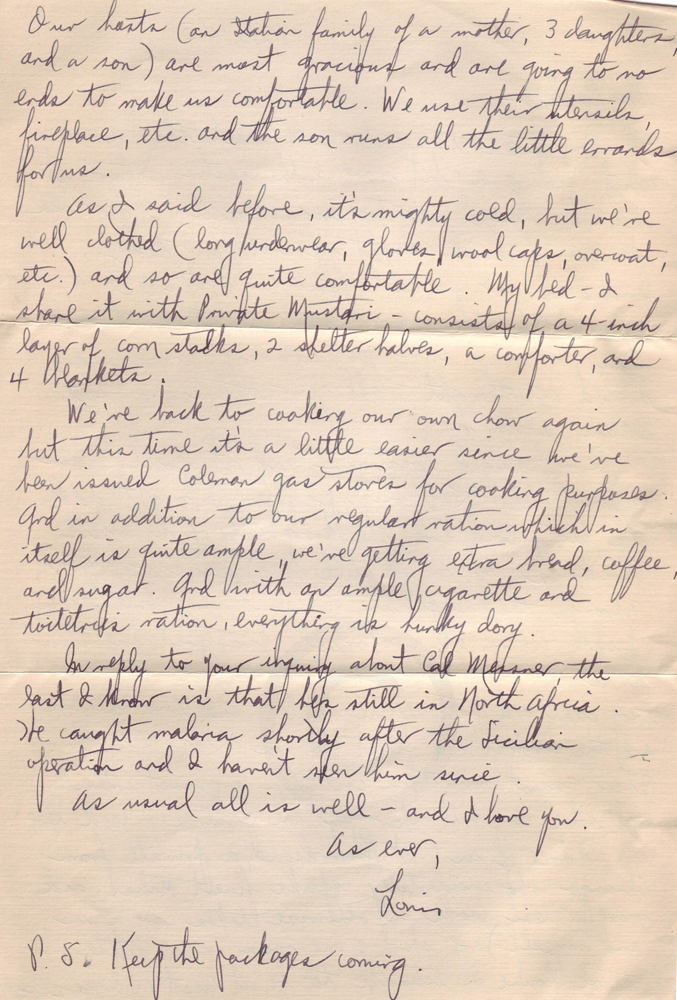 Our hosts (an Italian family of a mother, 3 daughters,
and a son) are most gracious and are going to no
ends to make us comfortable. We use their utensils,
fireplace, etc. and the son runs all the little errands
for us.
As I said before, it's mighty cold, but we're
well clothed (long underwear, gloves, wool caps, overcoat,
etc.) and so are quite comfortable. My bed - I
share it with Private Mustari - consists of a 4-inch
layer of corn stalks, 2 shelter halves, a comforter, and
4 blankets.
We're back to cooking our own chow again
but this time it's a little easier since we've
been issued Coleman gas stoves for cooking purposes.
And in addition to our regular ration which in
itself is quite ample, we're getting extra bread, coffee,
and sugar. And with an ample cigarette and
toiletries ration, everything is hunky dory.
In reply to your inquiry about Cal Messner, the
last I know is that he's still in North Africa.
He caught malaria shortly after the Sicilian
operation and I haven't seen him since.
As usual all is well - and I love you.
As ever,
Louis
P.S. Keep the packages coming.